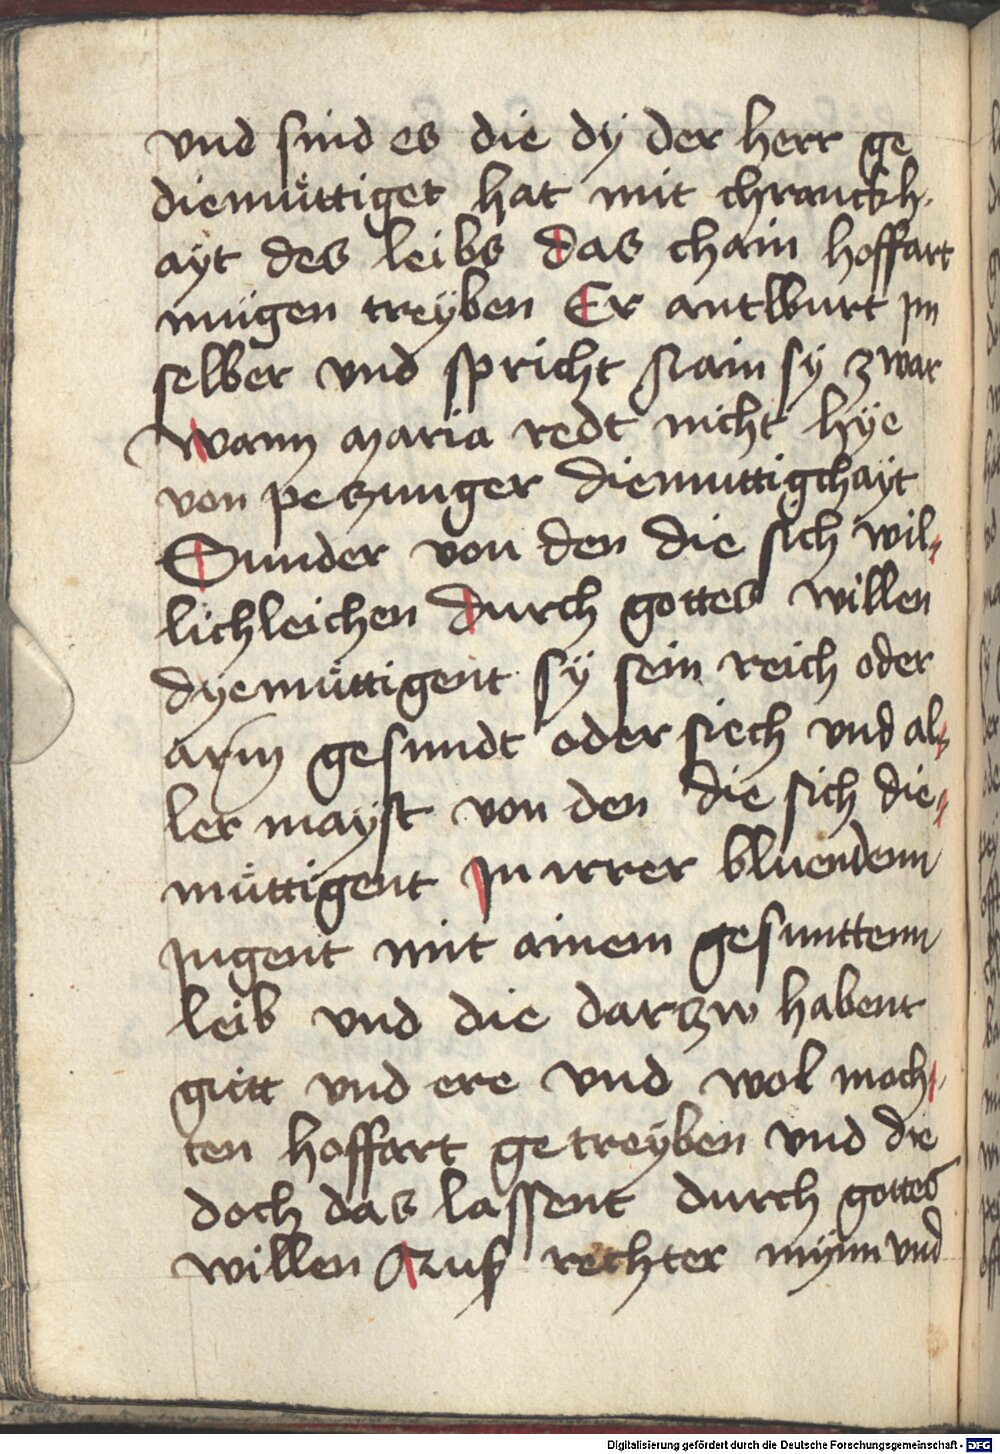 vnd sind es die dÿ der herr ge
diemüttiget hat mit chranckh-
aÿt des leibs das chain hoffart
mügen treÿben Er antwurt im
selber vnd spricht Nain sÿ zwar
Wann maria redt nicht hÿe
von peczunger diemuttigchaÿt
Sunder von den die sich wil-
lichleichen durch gottes willen
dyemüttigent sÿ sein reich oder
arm gesundt oder siech vnd al-
ler maÿst von den die sich die-
müttigent In irrer bluendenn
Jugent mit ainem gesunttenn
leib vnd die darczw habent
gütt vnd ere vnd wol moch-
ten hoffart getreÿben vnd die
doch das lassent durch gottes
willen Aus rechter mÿnn vnd
Digitalisierung gefördert durch die Deutsche Forschungsgemeinschaft - DFG